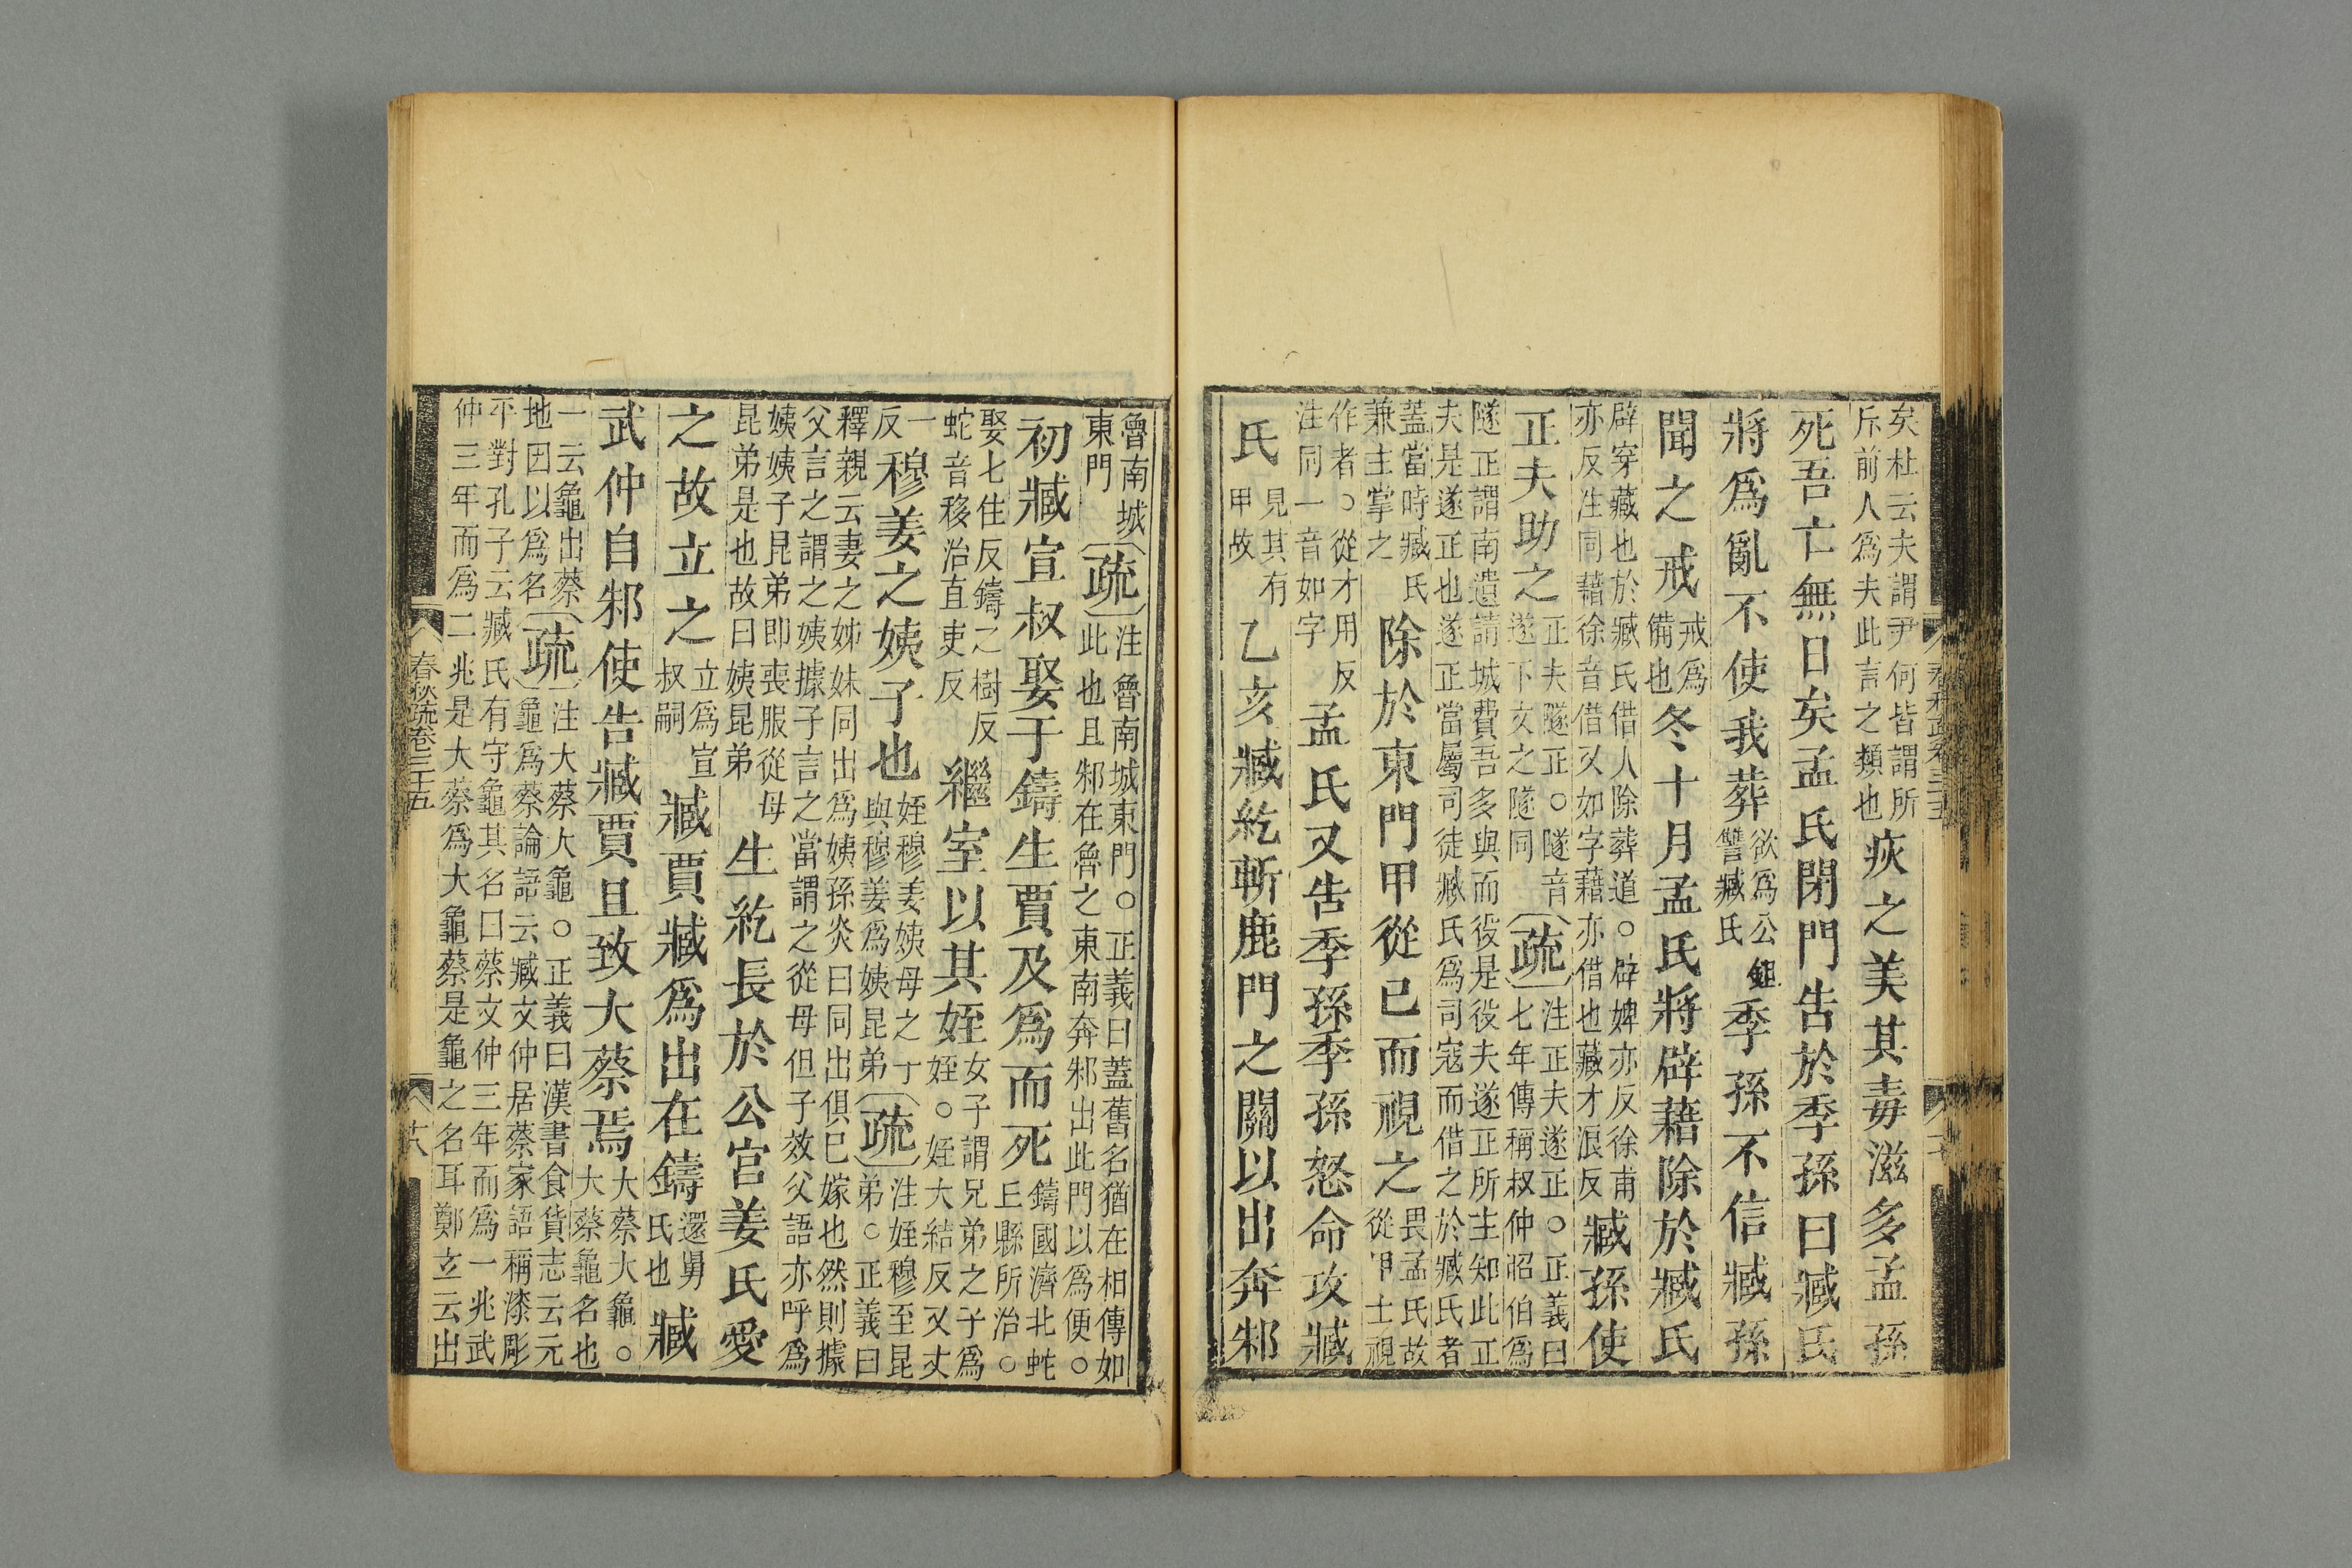 矣杜云夫謂尹何皆謂所
斥前人爲夫此言之類也
疢之美其毒滋多孟孫
死吾亡無日矣孟氏閉門告於季孫曰臧氏
將爲亂不使我葬
欲爲公鉏
讐臧氏
季孫不信臧孫
聞之戒
戒爲
備也
冬十月孟氏將辟藉除於臧氏
辟穿藏也於臧氏借人除葬道○辟婢亦反徐甫
亦反注同藉徐音借又如字藉亦借也藏才浪反
臧孫使
正夫助之
正夫隧正○隧音
遂下文之隧同
疏
注正夫遂正○正義曰
七年傳稱叔仲昭伯爲
隧正謂南遺請城費吾多與而役是役夫遂正所主知此正
夫是遂正也遂正當屬司徒臧氏爲司寇而借之於臧氏者
蓋當時臧氏
兼主掌之
除於東門甲從已而視之
畏孟氏故
從甲士視
作者○從才用反
注同一音如字
孟氏又告季孫季孫怒命攻臧
氏
見其有
甲故
乙亥臧紇斬鹿門之關以出奔邾
魯南城
東門
疏
注魯南城東門○正義曰蓋舊名猶在相傳如
此也且邾在魯之東南奔邾出此門以爲便○
初臧宣叔娶于鑄生賈及爲而死
鑄國濟北蛇
丘縣所治○
娶七住反鑄之樹反
蛇音移治直吏反
繼室以其姪
女子謂兄弟之子爲
姪○姪大結反又丈
一
反
穆姜之姨子也
姪穆姜姨母之丁
與穆姜爲姨昆弟
疏
注姪穆至昆
弟○正義曰
釋親云妻之姊妹同出爲姨孫炎曰同出俱已嫁也然則據
父言之謂之姨據子言之當謂之從母但子效父語亦呼爲
姨姨子昆弟即喪服從母
昆弟是也故曰姨昆弟
生紇長於公宮姜氏愛
之故立之
立爲宣
叔嗣
臧賈臧爲出在鑄
還舅
氏也
臧
武仲自邾使告臧賈且致大蔡焉
大蔡大龜○
大蔡龜名也
一云龜出蔡
地因以爲名
疏
注大蔡大龜○正義曰漢書食貨志云元
龜爲蔡論語云臧文仲居蔡家語稱漆彫
平對孔子云臧氏有守龜其名曰蔡文仲三年而爲一兆武
仲三年而爲二兆是大蔡爲大龜蔡是龜之名耳鄭玄云出
春秋疏卷三十五